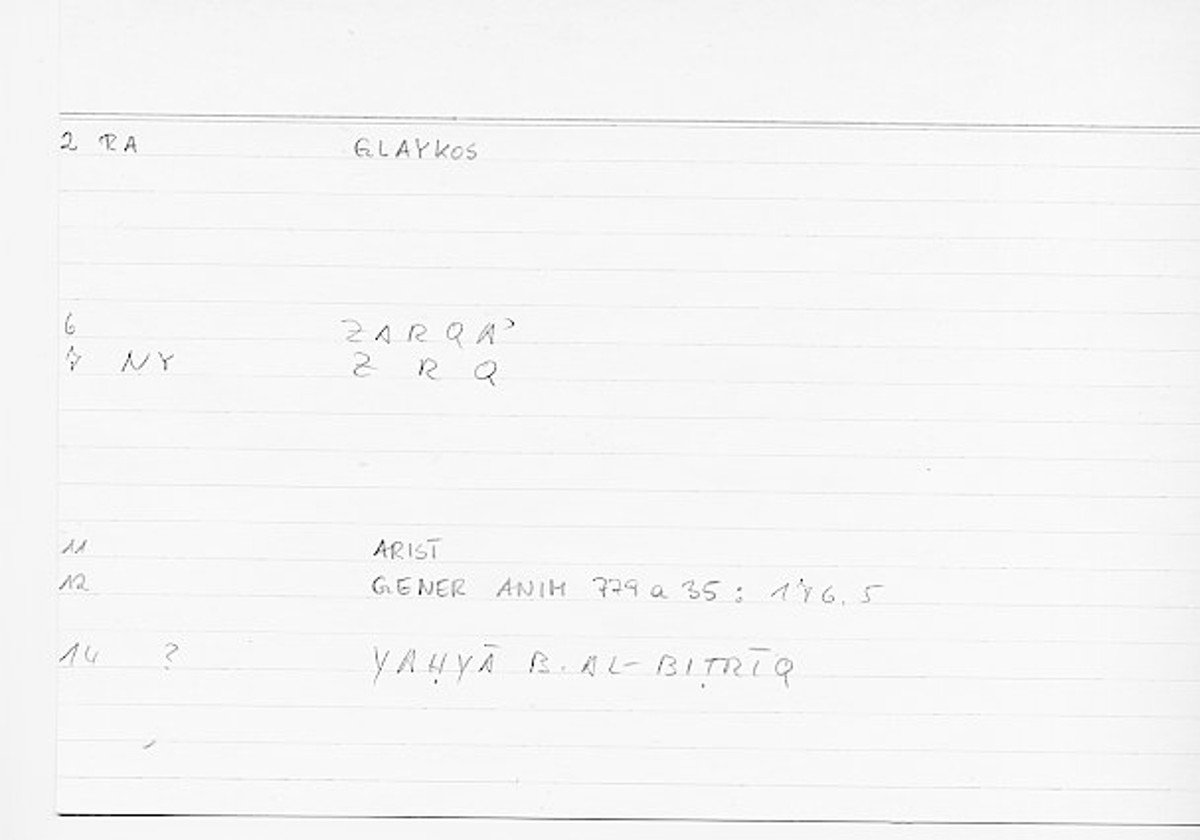 2 RA GLAYKOS
6 ZARQAʾ
7 NY Z R Q
11 ARIST
12 GENER ANIM 779 a 35 : 176.5
14 ? YAḤYĀ B. AL-BIṬRĪQ